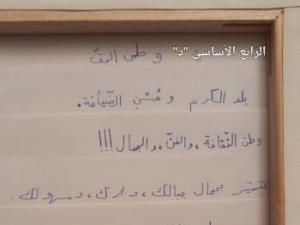 الرابع الأساسي "د"
و طن المحبّ
بلد الكرم و حُسْنِ الضّيافة.
وطن الثّقافة، والفنّ، والجمال!!!
تتميّز بجمال جبالك، وبحرك، وسهولك.